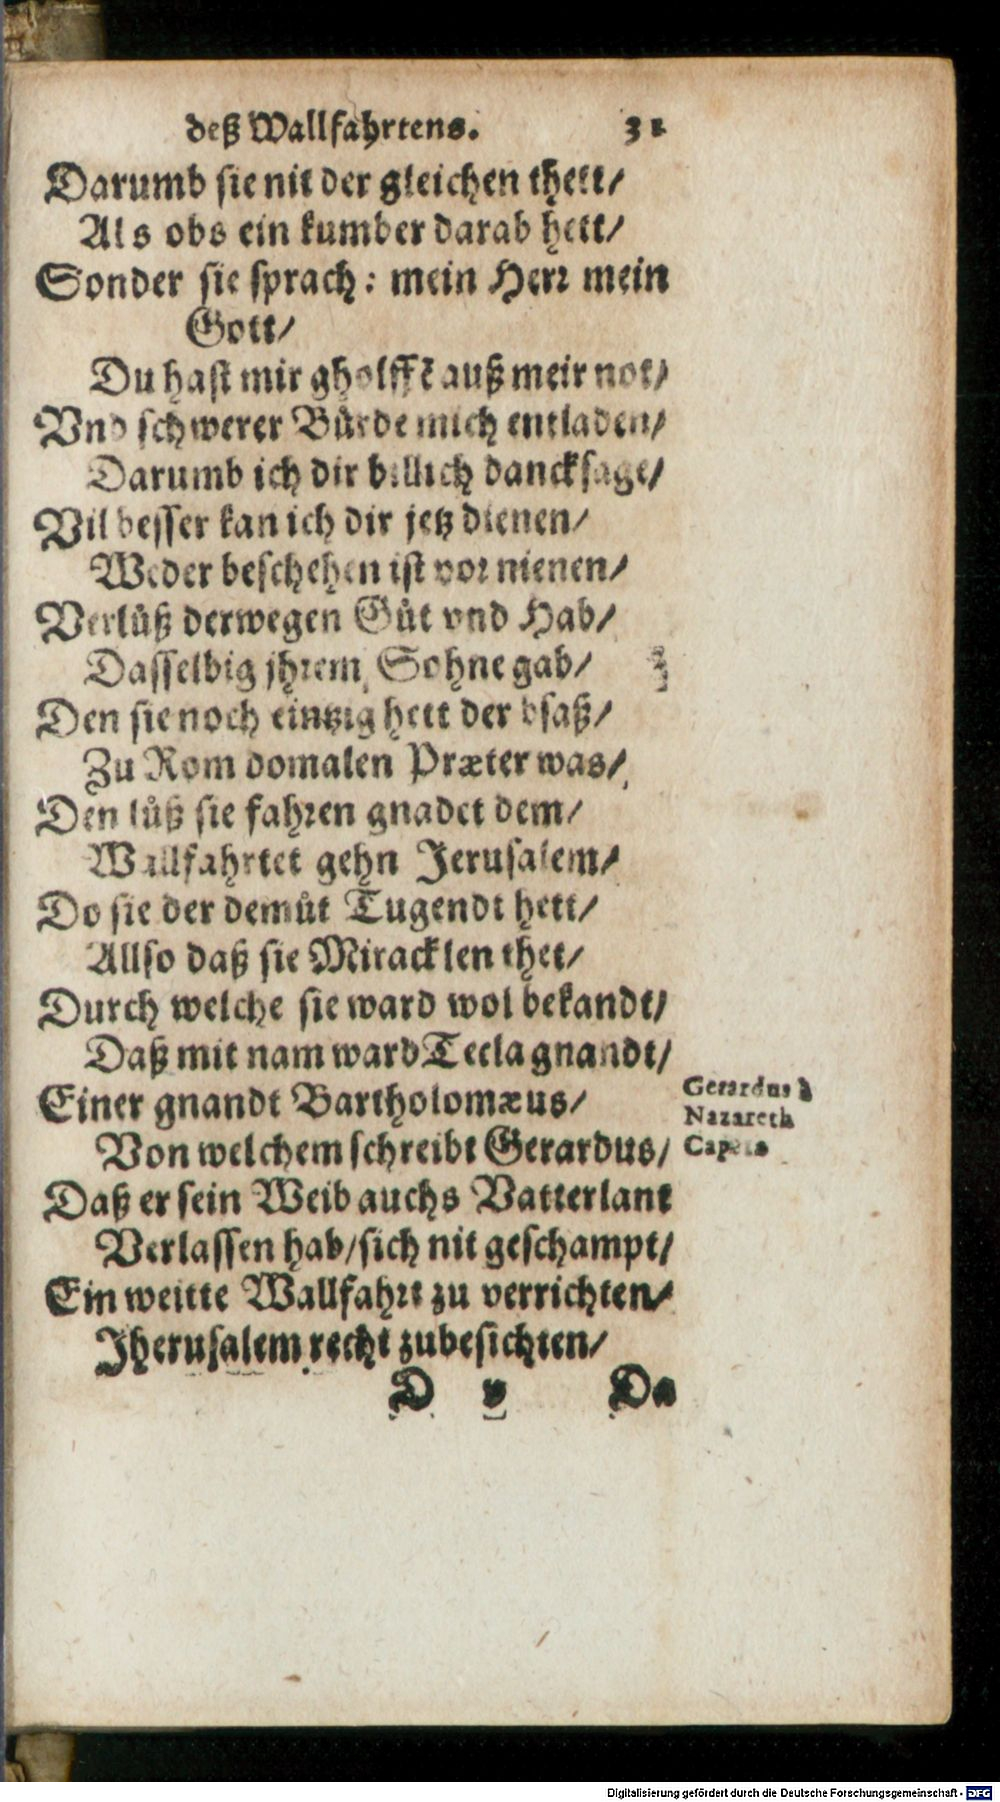 deß Wallfahrtens. 31
Darumb sie nit der gleichen thett/
Als obs ein kumber darab hett/
Sonder sie sprach: mein Herr mein
Gott/
Du hast mir gholffẽ auß meir not/
Vnd schwerer Bürde mich entladen/
Darumb ich dir billich dancksage/
Vil besser kan ich dir jetz dienen/
Weder beschehen ist vor nienen/
Verlůß derwegen Gůt vnd Hab/
Dasselbig jhrem Sohne gab/
Den sie noch eintzig hett der bsaß/
Zu Rom domalen Præter was/
Den lůß sie fahren gnadet dem/
Wallfahrtet gehn Jerusalem/
Do sie der demůt Tugendt hett/
Allso daß sie Miracklen thet/
Durch welche sie ward wol bekandt/
Daß mit nam ward Tecla gnandt/
Einer gnandt Bartholomæus/
Von welchem schreibt Gerardus/
Daß er sein Weib auchs Vatterlant
Verlassen hab/sich nit geschampt/
Ein weitte Wallfahrt zu verrichten/
Jherusalem recht zubesichten/
Gerardus à
Nazareth
D v Da
Digitalisierung gefördert durch die Deutsche Forschungsgemeinschaft - DFG